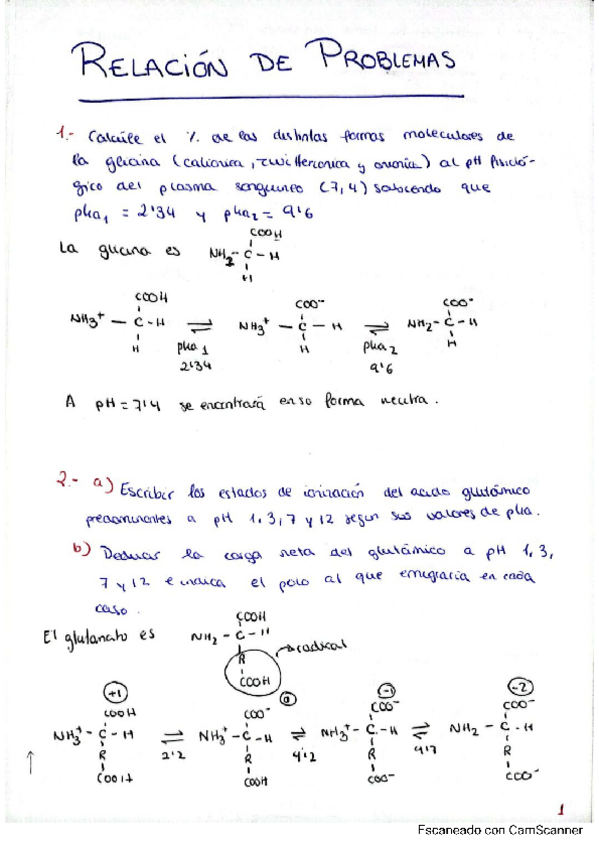 RELACIÓN DE PROBLEMAS
1.- Calcule el % de las distintas formas moleculares de
la glicina (cationica, zwitterionica y anonia) al pH fisioló-
gico del plasma sanguineo (7,4) sabiendo que
pka1 = 2'34 y pka2 = 9'6
La glicina es
COOH
NH2 - C - H
H
COOH
COO-
COO-
NH3+ - C - H ⇌ NH3+ - C - H ⇌ NH2 - C - H
H
pka1
H
pka2
H
2'34
9'6
A pH = 7'4 se encontrará en su forma neutra.
2.- a) Escribir los estados de ionización del acido glutámico
predominantes a pH 1, 3, 7 y 12 segun sus valores de pka.
b) Deducir la carga neta del glutámico a pH 1, 3,
7 y 12 e indica el polo al que emigraria en cada
caso.
El glutanato es
COOH
NH2 - C - H
R
radical
COOH
+1
0
-1
-2
COOH
COO-
COO-
COO-
NH3+ - C - H ⇌ NH3+ - C - H ⇌ NH3+ - C - H ⇌ NH2 - C - H
R
2'2
R
4'2
R
9'7
R
COOH
COOH
COO-
COO-
↑
1
Escaneado con CamScanner